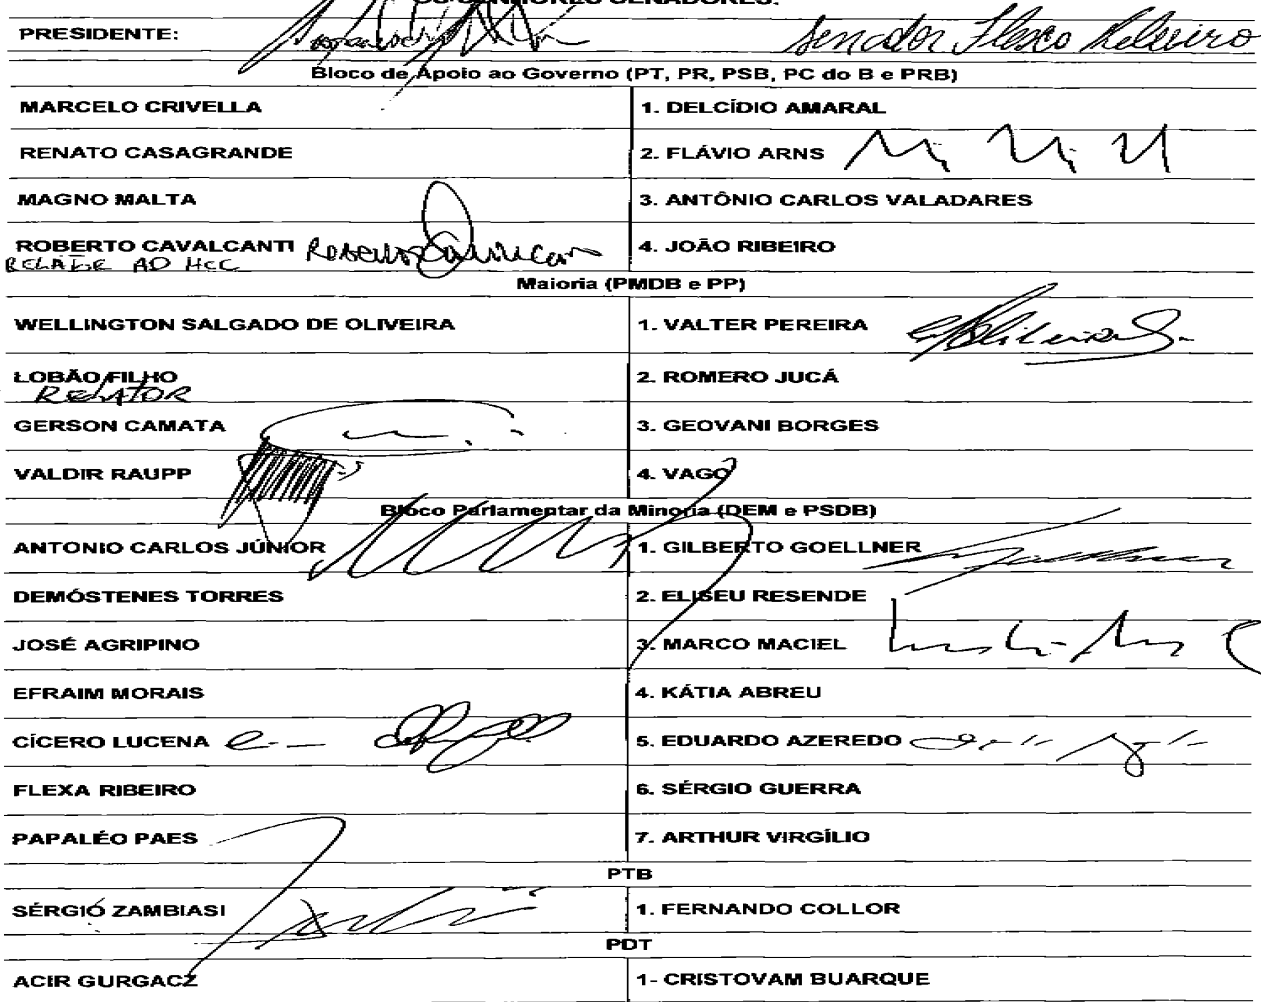 OS SENHORES SENADORES:
PRESIDENTE: Senador Flexa Ribeiro
Bloco de Apoio ao Governo (PT, PR, PSB, PC do B e PRB)
MARCELO CRIVELLA 1. DELCÍDIO AMARAL
RENATO CASAGRANDE 2. FLÁVIO ARNS
MAGNO MALTA 3. ANTÔNIO CARLOS VALADARES
ROBERTO CAVALCANTI 4. JOÃO RIBEIRO
AD HOC
Maioria (PMDB e PP)
WELLINGTON SALGADO DE OLIVEIRA 1. VALTER PEREIRA
LOBÃO FILHO 2. ROMERO JUCÁ
RELATOR
GERSON CAMATA 3. GEOVANI BORGES
VALDIR RAUPP 4. VAGO
Bloco Parlamentar da Minoria (DEM e PSDB)
ANTONIO CARLOS JÚNIOR 1. GILBERTO GOELLNER
DEMÓSTENES TORRES 2. ELISEU RESENDE
JOSÉ AGRIPINO 3. MARCO MACIEL
EFRAIM MORAIS 4. KÁTIA ABREU
CÍCERO LUCENA 5. EDUARDO AZEREDO
FLEXA RIBEIRO 6. SÉRGIO GUERRA
PAPALÉO PAES 7. ARTHUR VIRGÍLIO
PTB
SÉRGIO ZAMBIASI 1. FERNANDO COLLOR
PDT
ACIR GURGACZ 1- CRISTOVAM BUARQUE